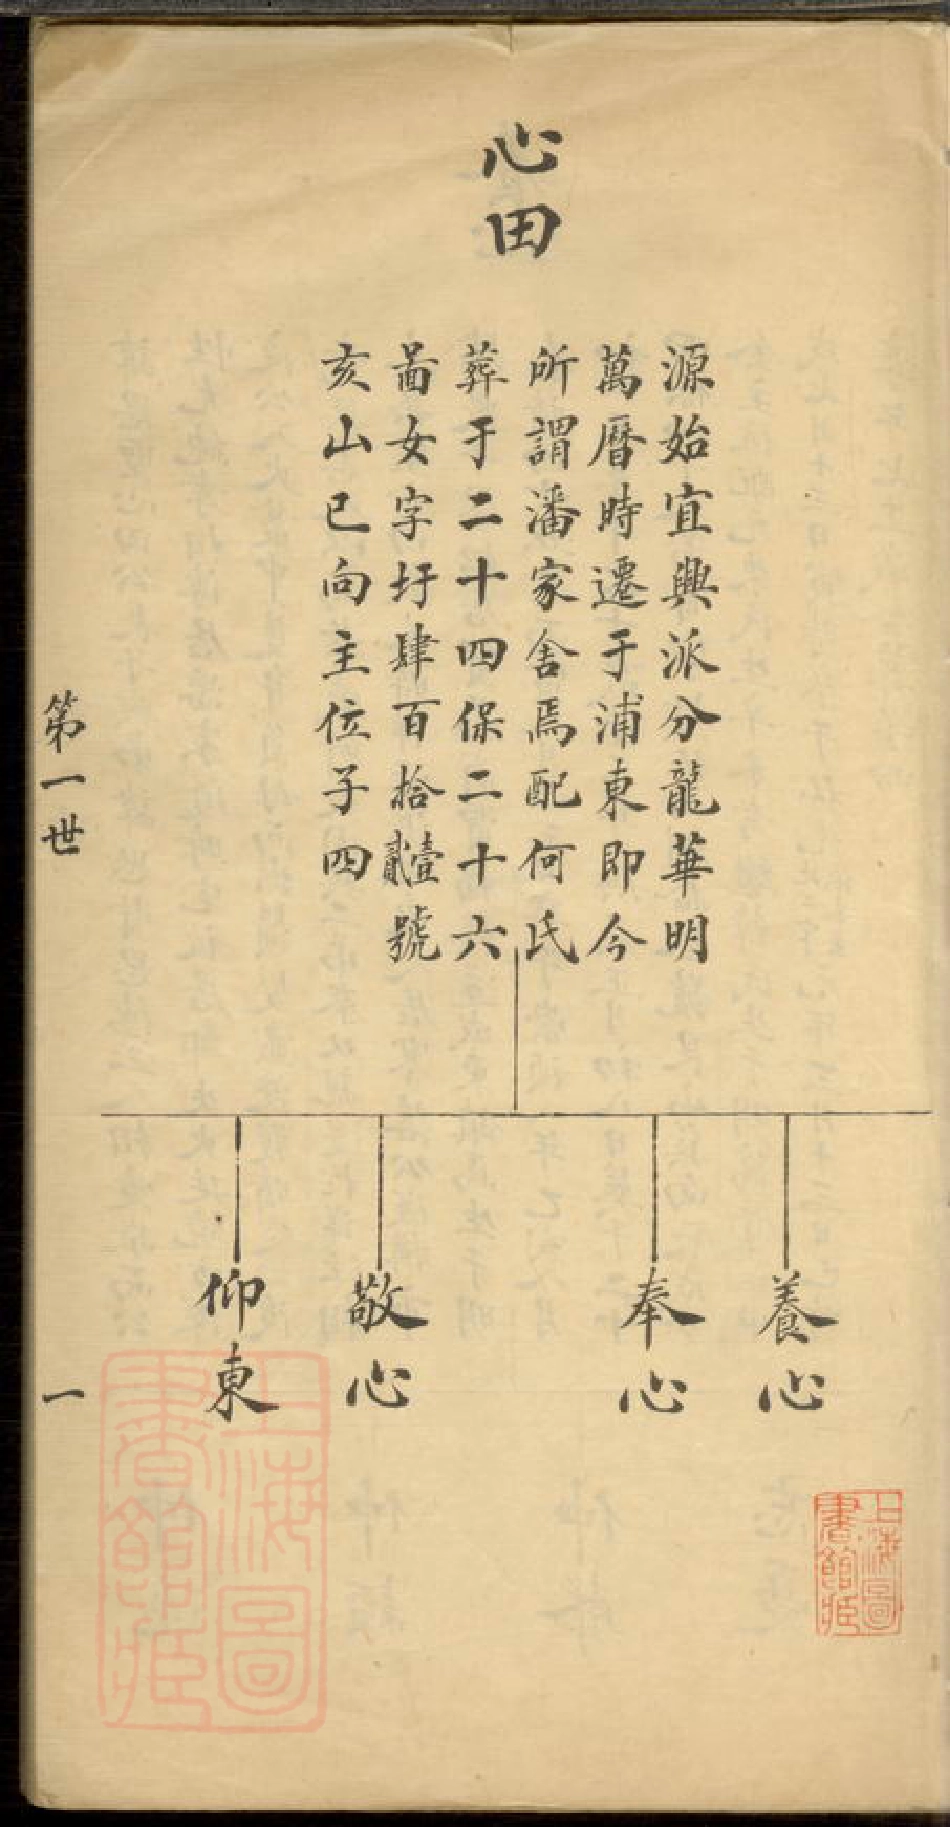 心田
源始宜興派分龍華明
萬曆時遷于浦東即今
所謂潘家舍焉配何氏
葬于二十四保二十六
啚女字圩肆百拾壹貳號
亥山巳向主位子四
養心
奉心
敬心
仰東
第一世
一
上海圖書館藏
上海圖書館藏